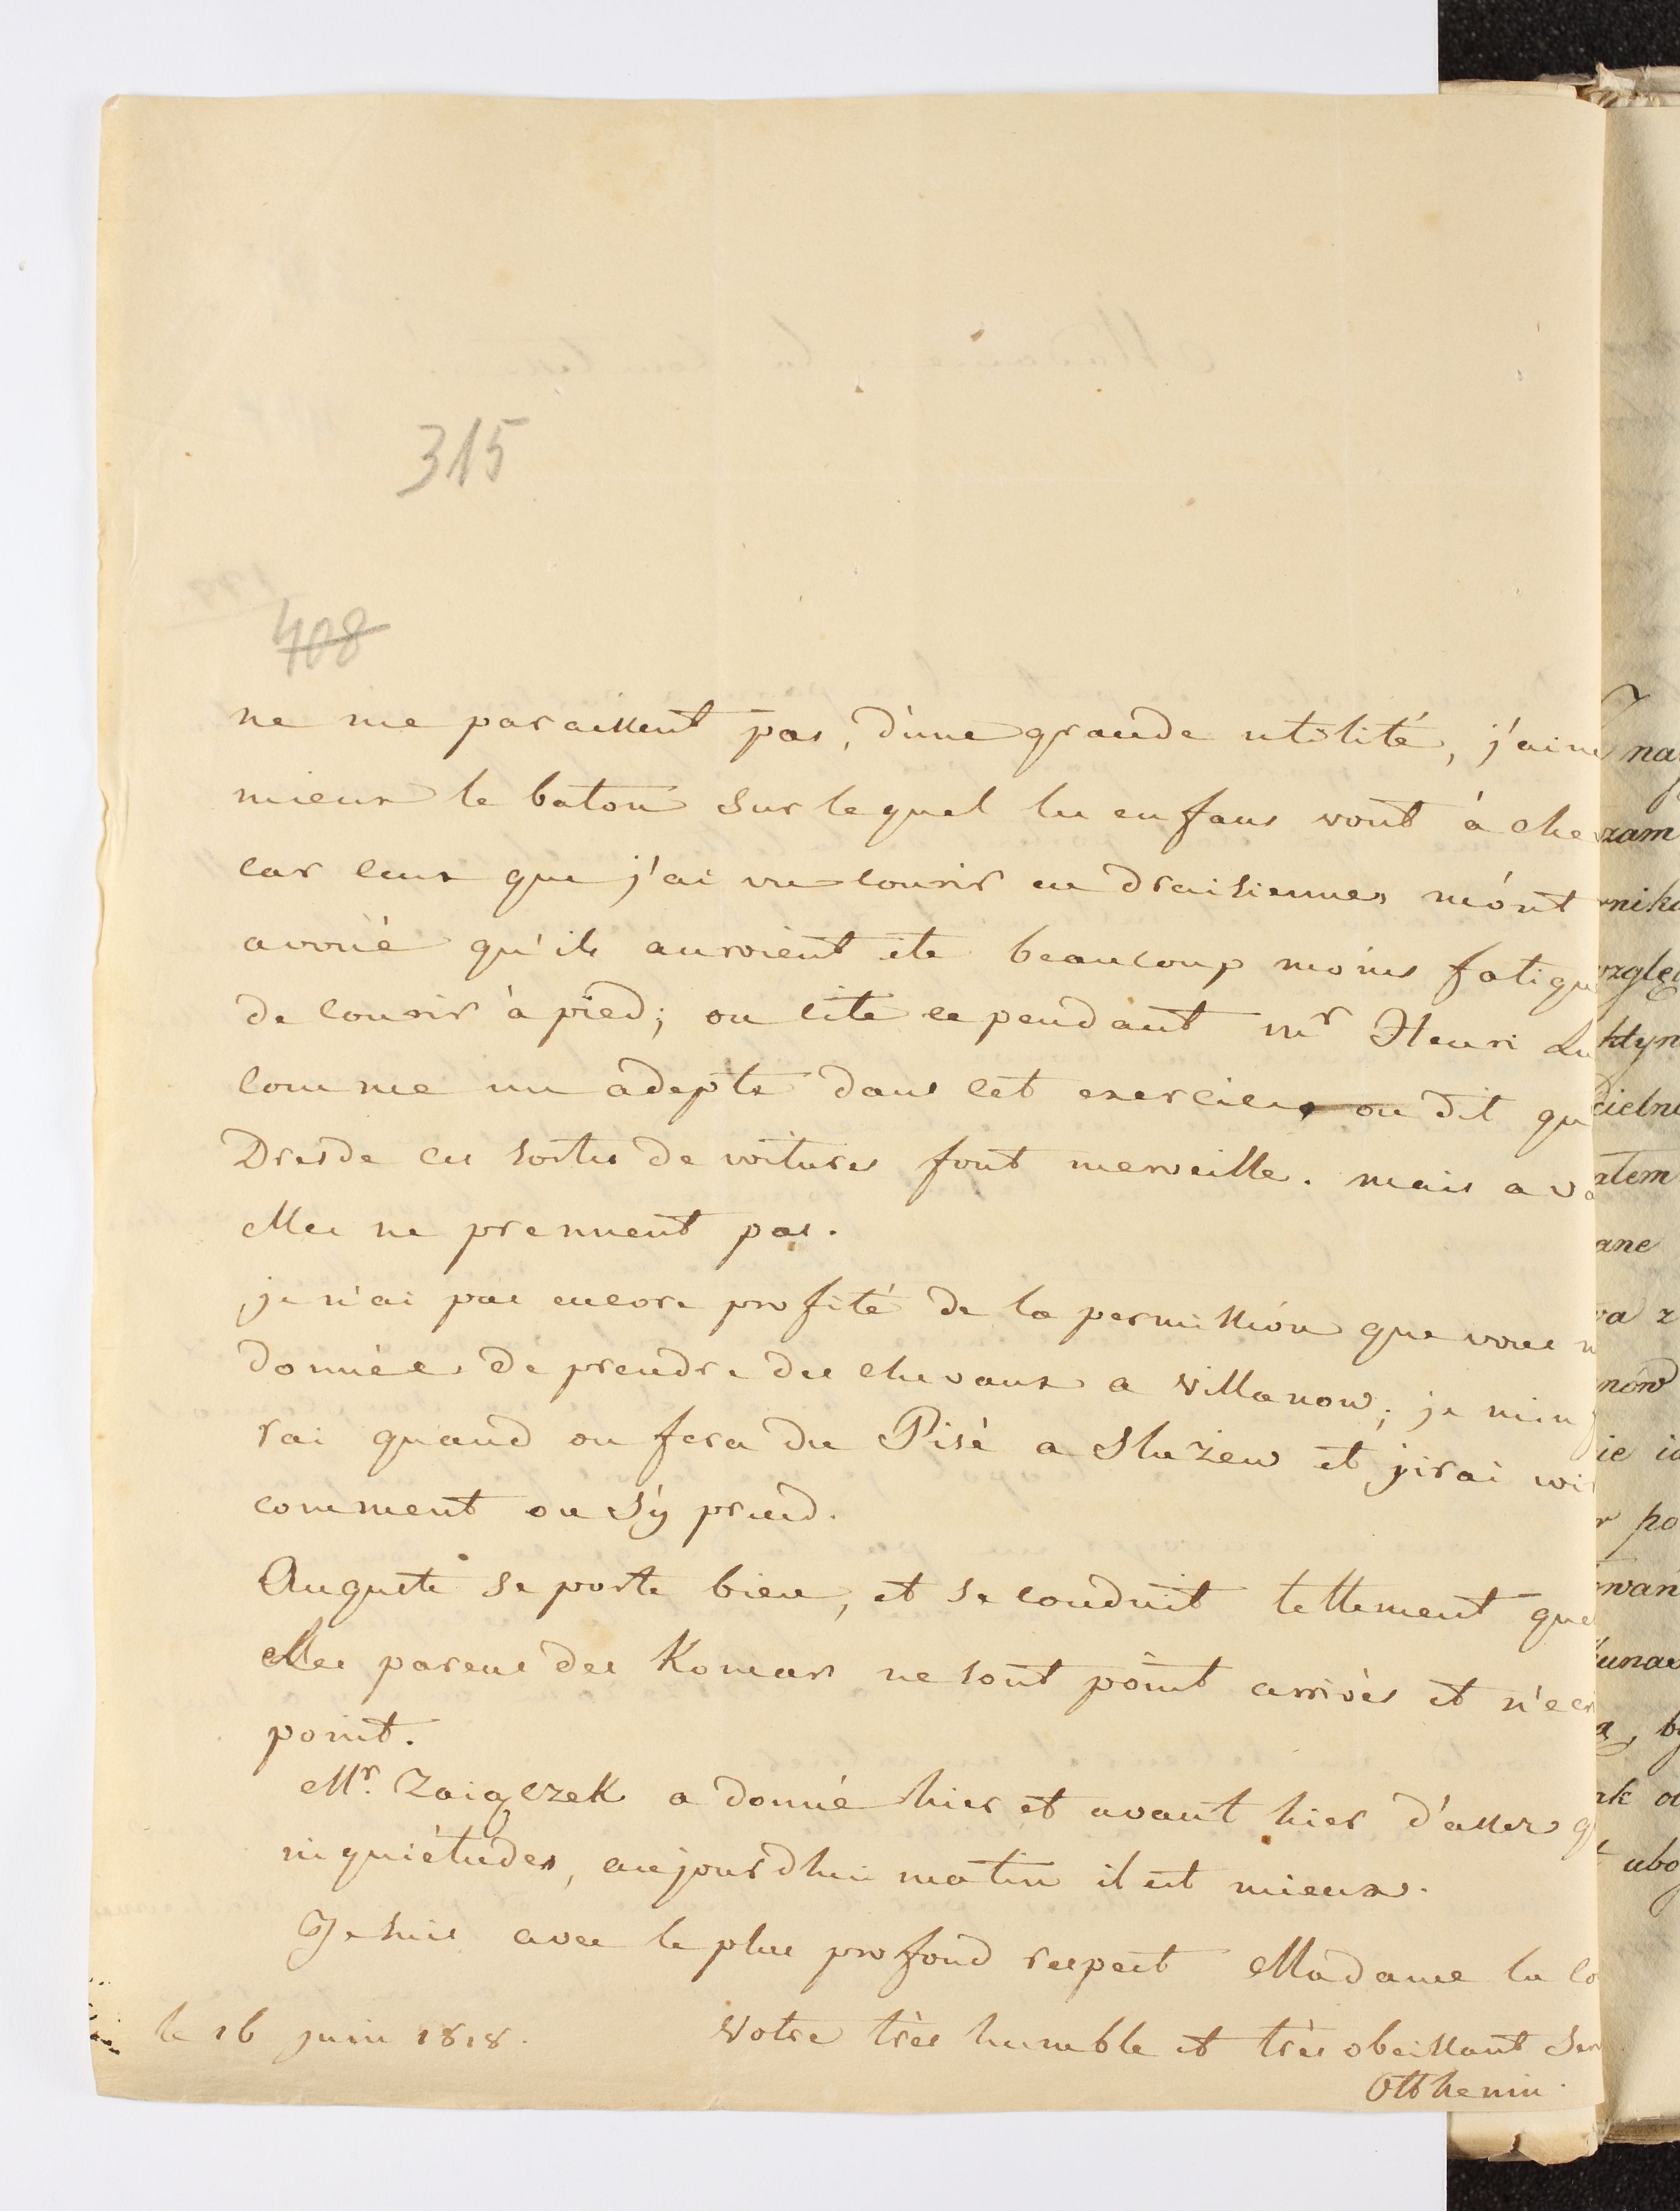 315
408
ne me paraissent pas, d'une grande utilité, j'aime
mieux le baton sur lequel les enfans vont à che
car ceux que j'ai vu courir en draisiennes m'ont
avoué qu'ils auroient été beaucoup moins fatigu
de courir à pied; on cite cependant mr Henri Lu
comme un adepte dans cet exercice on dit qu
Dresde ces sortes de voitures font merveille. mais a va
elles ne prennent pas.
je n'ai pas encore profité de la permission que vous m
donnée de prendre des chevaux a Villanow; je m'in
rai quand on fera du Pisé a Służew et j'irai voi
comment on s'y prend.
Auguste se porte bien, et se conduit tellement que
Les parens des Komars ne sont point arrivés et n'ecr
point.
Mr. Zaiączek a donné hier et avant hier d'assez g
inquiétudes, aujourdhui matin il est mieux.
Je suis avec le plus profond respect Madame la co
le 16 juin 1818. Votre très humble et très obeissant Ser
Otthenin.
na
zam
rnik
wzglę
ktyn
cielni
atem
ane
va z
now
ie
r po
owan
unae
ubo